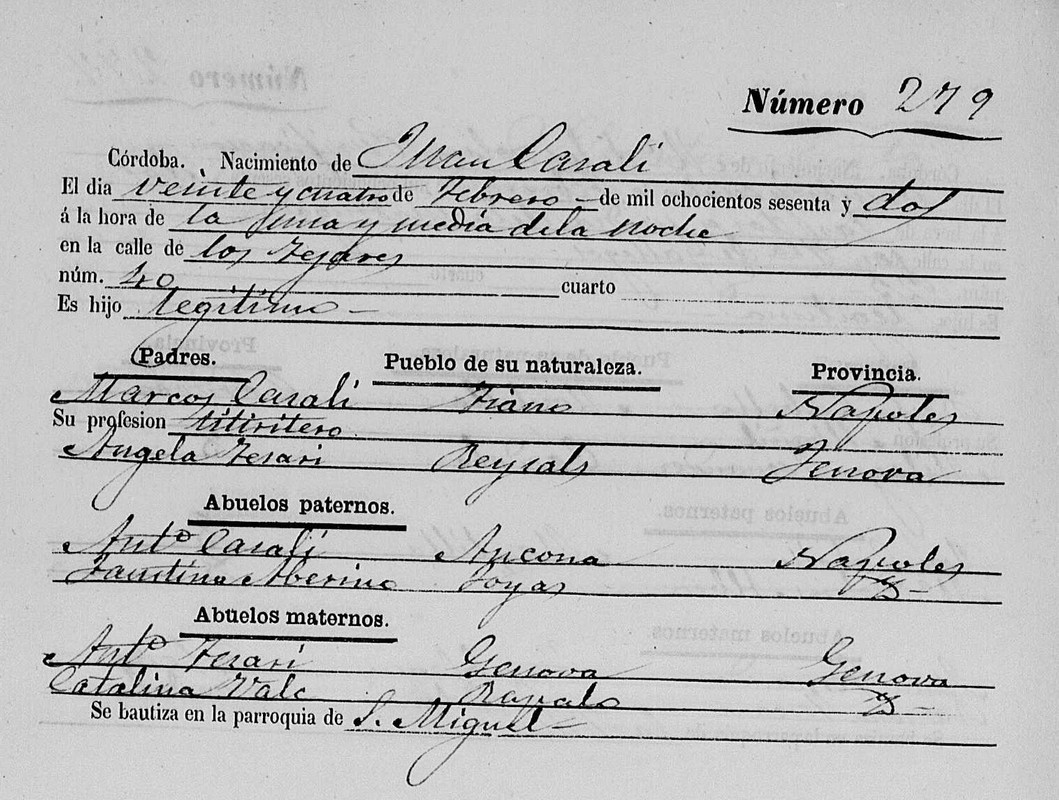 Número 279
Córdoba. Nacimiento de Juan Casali
El dia veinte y cuatro de Febrero - de mil ochocientos sesenta y dos
á la hora de la una y media de la noche
en la calle de los Tejares
núm. 40 cuarto
Es hijo legitimo -
Padres. Pueblo de su naturaleza. Provincia.
Marcos Casali Fiano Napoles
Su profesion titiritero
Angela Fesari Genova
Abuelos paternos.
Antº Casali Ancona Napoles
Faustina Aberino
Abuelos maternos.
Antº Fesari Genova Genova
Catalina Vale
Se bautiza en la parroquia de S. Miguel -